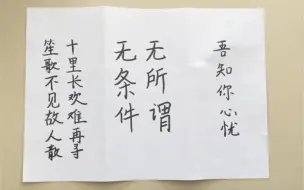 吾知你心忧
无所谓
无条件
十里长欢难再寻
笙歌不见故人散